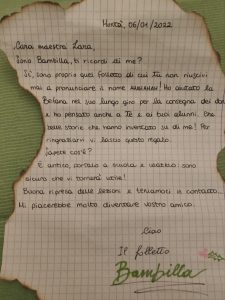 Monza, 06/01/2022
Cara maestra Lara,
Sono Bambilla, ti ricordi di me?
Sì, sono proprio quel folletto di cui tu non riuscivi
mai a pronunciare il nome AHAHAHAH! Ho aiutato la
Befana nel suo lungo giro per la consegna dei doni
e ho pensato anche a te e ai tuoi alunni. Che
belle storie che hanno inventato su di me! Per
ringraziarvi vi lascio questo regalo.
Sapete cos'è?
È antico, portalo a scuola e usatelo: sono
sicura che vi tornerà utile!
Buona ripresa delle lezioni e teniamoci in contatto...
Mi piacerebbe molto diventare vostro amico.
Ciao
Il folletto
Bambilla